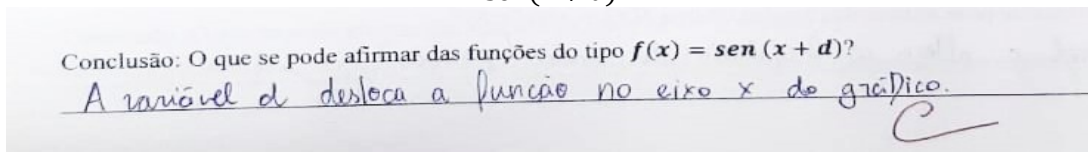 Conclusão: O que se pode afirmar das funções do tipo f(x) = sen (x + d)?
A variável d desloca a função no eixo x do gráfico.
C